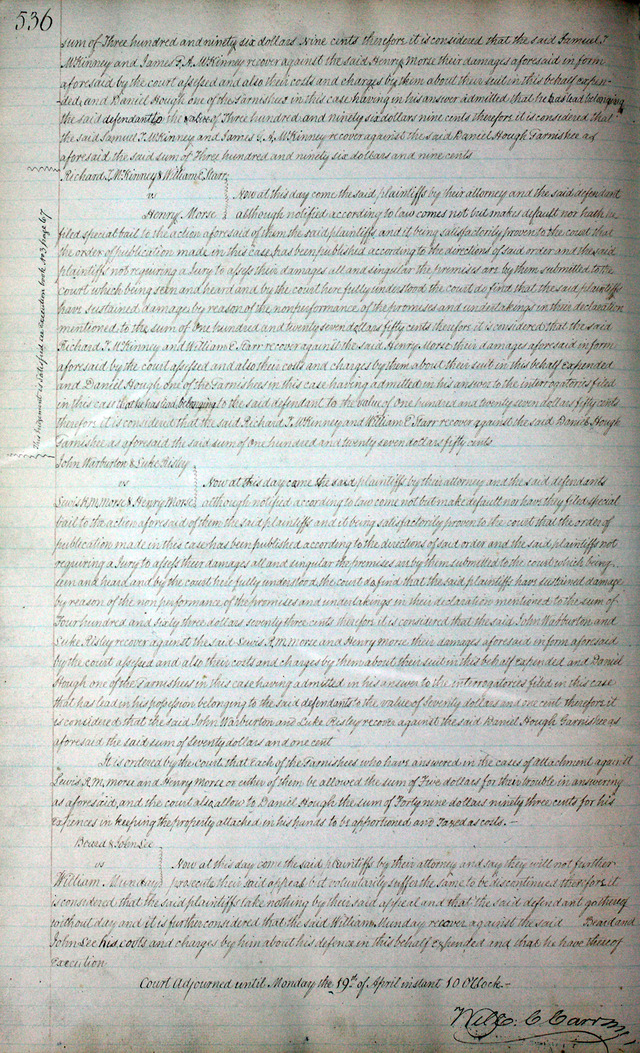 536
sum of Three hundred and ninety six dollars Nine cents therefore it is considered that the said Samuel T
McKinney and James G. A. McKinney recover against the said Henry Morse their damages aforesaid in form
aforesaid by the court assessed and also their costs and charges by them about their suit in this behalf expen-
-ded, and Daniel Hough one of the Garnishees in this case having in his answer admitted that he has lead belonging
the said defendant to the value of Three hundred and ninety six dollars nine cents therefore it is considered that
the said Samuel T. McKinney and James G A. McKinney recover against the said Daniel Hough Garnishee as
aforesaid the said sum of Three hundred and ninety six dollars and nine cents
Richard T. McKinney & William E Starr
vs Now at this day come the said plaintiffs by their attorney and the said defendant
Henry Morse although notified according to law comes not but makes default nor hath he
filed special bail to the action aforesaid of them the said plaintiffs and it being satisfactorily proven to the court that
the order of publication made in this case has been published according to the directions of said order and the said
plaintiffs not requiring a Jury to assess their damages all and singular the premises are by them submitted to the
court which being seen and heard and by the court here fully understood the court do find that the said plaintiffs
have sustained damage by reason of the nonperformance of the promises and undertakings in their declaration
mentioned to the sum of One hundred and twenty seven dollars fifty cents therefore it is considered that the said
Richard T. McKinney and William E Starr recover against the said Henry Morse their damages aforesaid in form
aforesaid by the court assessed and also their costs and charges by them about their suit in this behalf expended
and Daniel Hough one of the Garnishees in this case having admitted in his answer to the interogatories filed
in this case that he has lead belonging to the said defendant to the value of One hundred and twenty seven dollars fifty cents
therefore it is considered that the said Richard T. McKinney and William E Starr recover against the said Daniel Hough
Garnishee as aforesaid the said sum of one hundred and twenty seven dollars fifty cents
This judgment is satisfied see execution book No 3 page 67
John Warburton & Luke Risley
vs Now at this day came the said plaintiffs by their attorney and the said defendants
Lewis R. M. Morse & Henry Morse although notified according to law come not but make default nor have they filed special
bail to the action aforesaid of them the said plaintiffs and it being satisfactorily proven to the court that the order of
publication made in this case has been published according to the directions of said order and the said plaintiffs not
requiring a Jury to assess their damages all and singular the premises are by them submitted to the court which being
seen and heard and by the court here fully understood the court do find that the said plaintiffs have sustained damage
by reason of the non performance of the promises and undertakings in their declaration mentioned to the sum of
Four hundred and sixty three dollars seventy three cents therefore it is considered that the said John Warburton and
Luke Risley recover against the said Lewis R. M. Morse and Henry Morse their damages aforesaid in form aforesaid
by the court assessed and also their costs and charges by them about their suit in this behalf expended and Daniel
Hough one of the Garnishees in this case having admitted in his answer to the interrogatories filed in this case
that has lead in his possession belonging to the said defendants to the value of Seventy dollars and one cent therefore it
is considered that the said John Warburton and Luke Risley recover against the said Daniel Hough Garnishee as
aforesaid the said sum of Seventy dollars and one cent
It is ordered by the court that each of the Garnishees who have answered in the cases of attachment against
Lewis R. M. Morse and Henry Morse or either of them be allowed the sum of Five dollars for their trouble in answering
as aforesaid, and the court also allow to Daniel Hough the sum of Forty nine dollars ninety three cents for his
expences in keeping the property attached in his hands to be apportioned and Taxed as costs.—
Beard & John Lee
vs Now at this day come the said plaintiffs by their attorney and say they will not further
William Munday prosecute their said appeal but voluntarily suffer the same to be discontinued therefore it
is considered that the said plaintiffs take nothing by their said appeal and that the said defendant go thereof
without day and it is further considered that the said William Munday recover against the said Beard and
John Lee his costs and charges by him about his defence in this behalf expended and that he have thereof
Execution
Court Adjourned until Monday the 19th of April instant 10 OClock.—
Will. C Carr